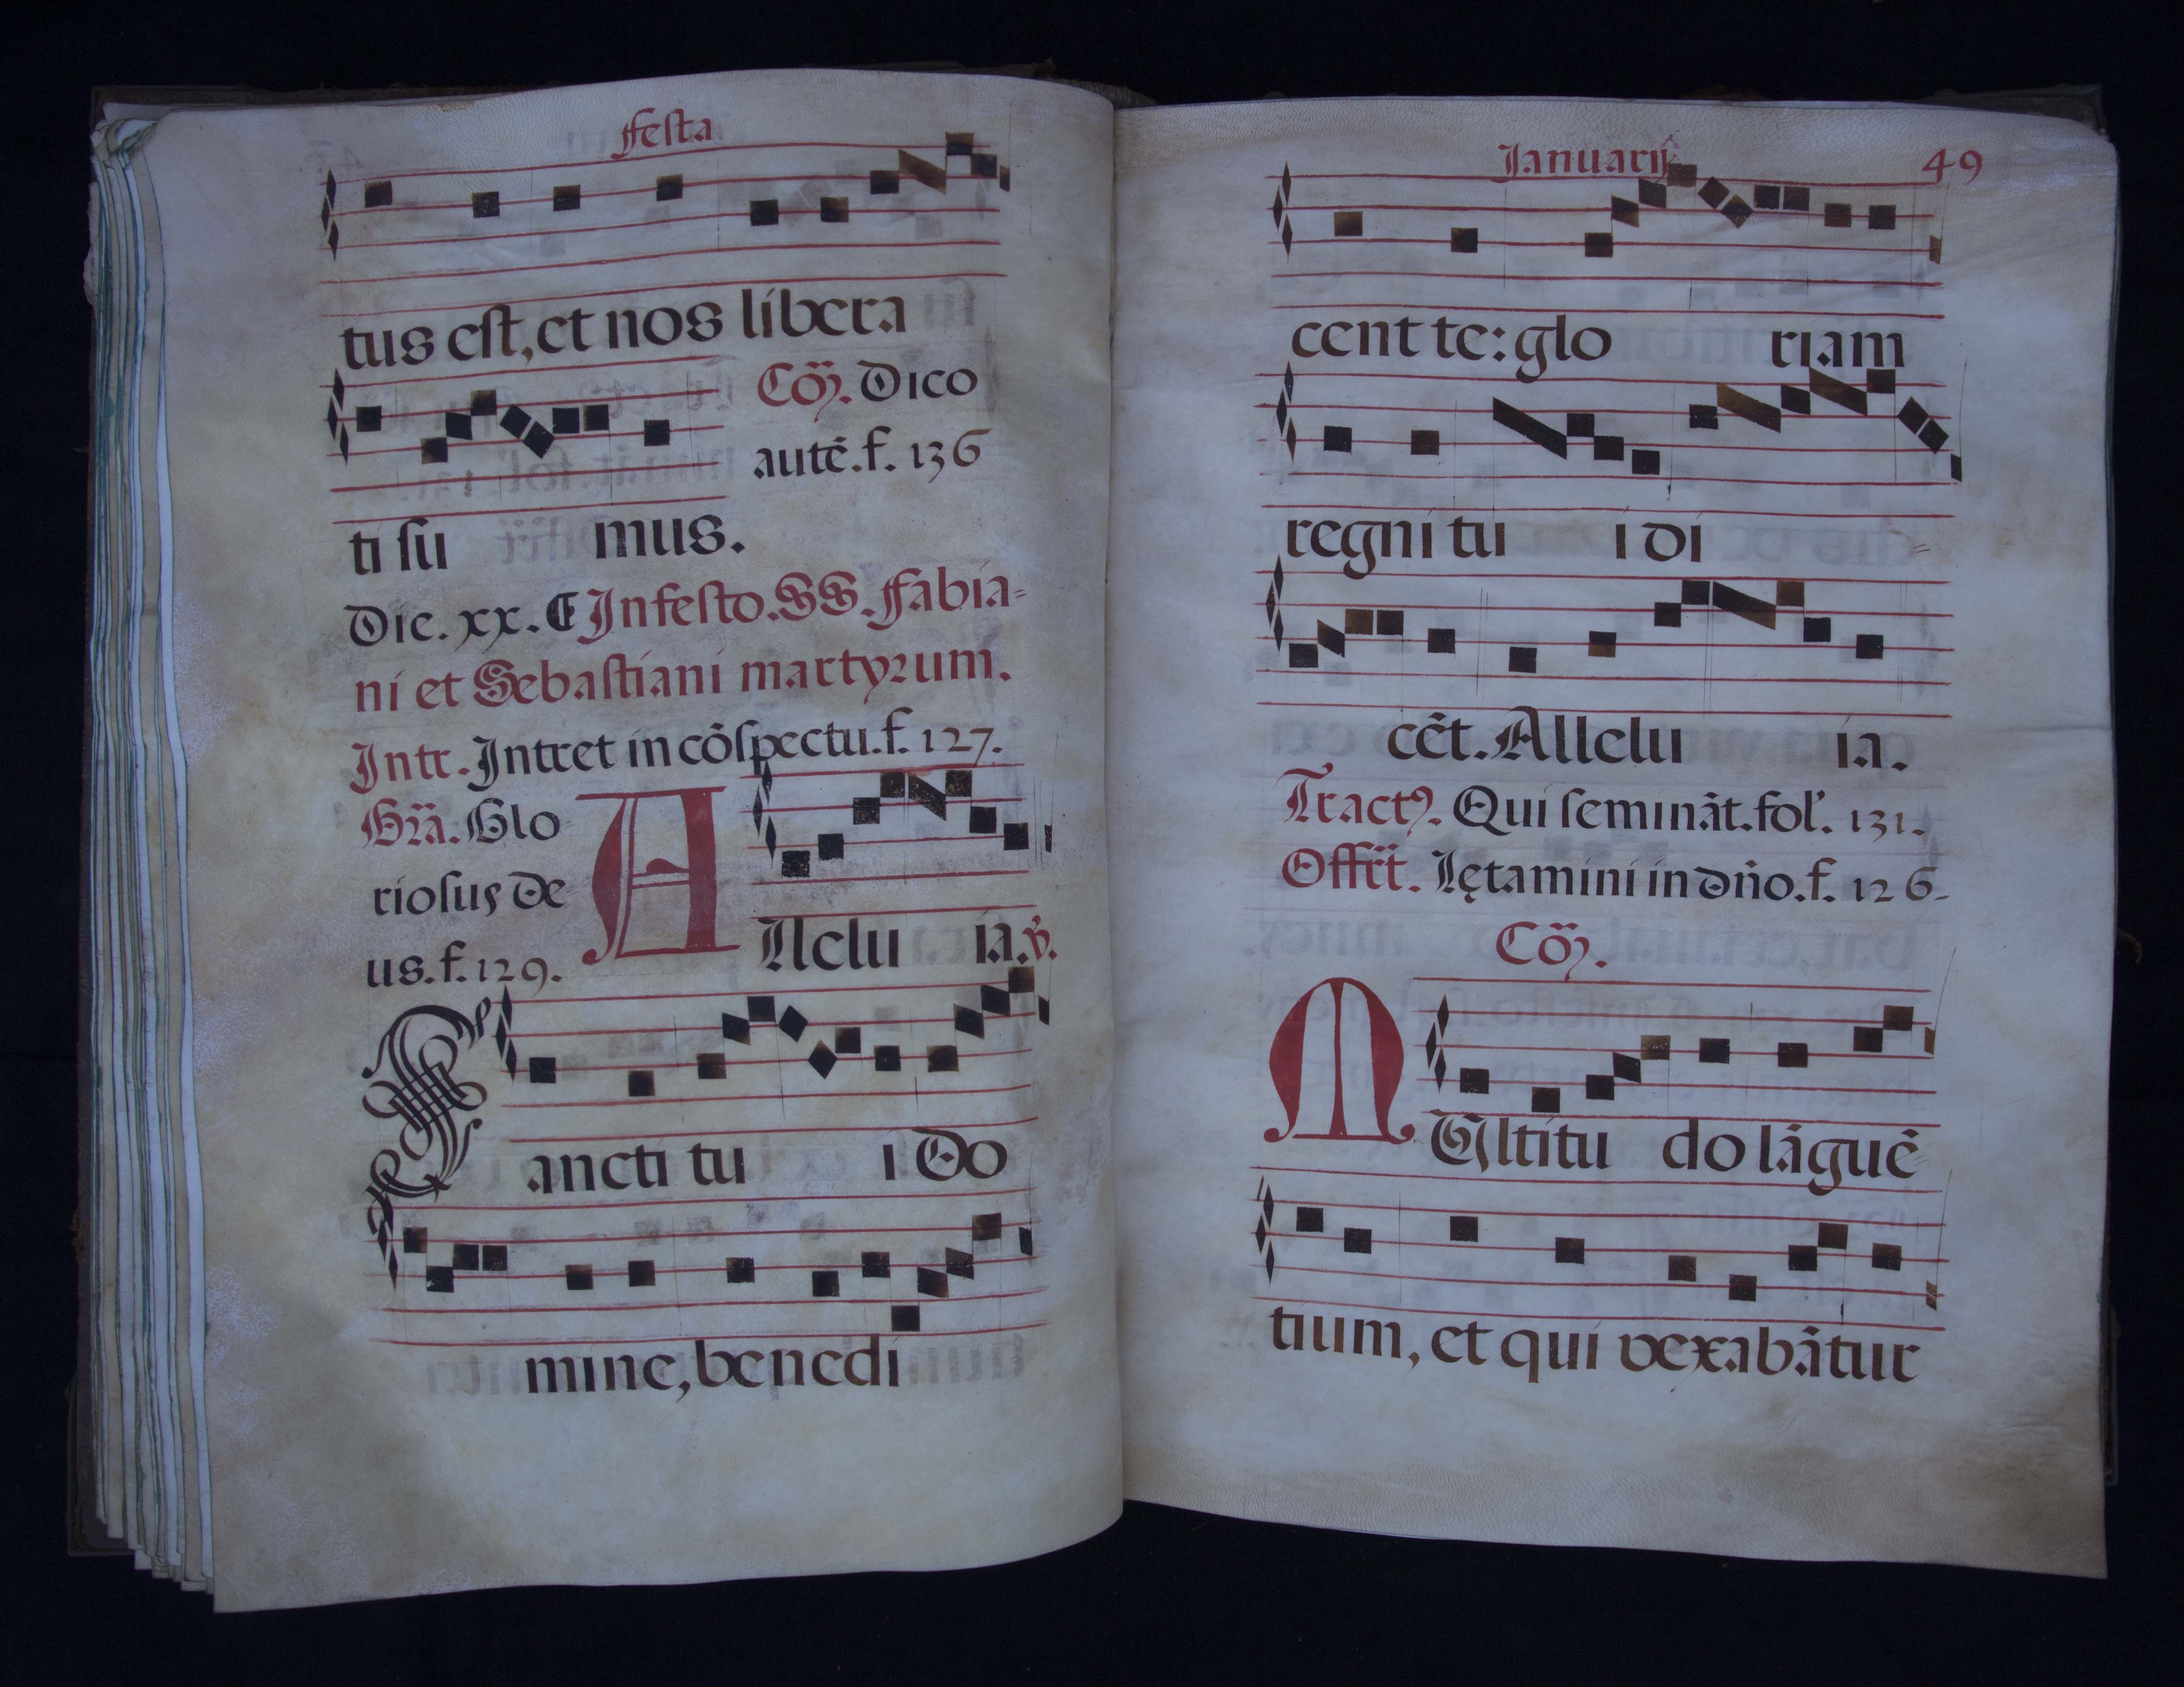 Festa
tus est, et nos libera
Cõ. Dico
autē. f. 136
ti su mus.
Die. xx. In festo. SS. Fabia-
ni et Sebastiani martyrum.
Intr. Intret in cōspectu. f. 127.
Gra. Glo
riosus De
us. f. 129.
A llelu ia. v.
Sancti tu i Do
mine, benedi
Ianuarij
49
cent te: glo riam
regni tu i di =
cēt. Allelu ia.
Tract9. Qui semināt. fol. 131.
Offrt. Lętamini in dño. f. 126.
Cõ.
MUltitu do lāguē =
tium, et qui vexabātur